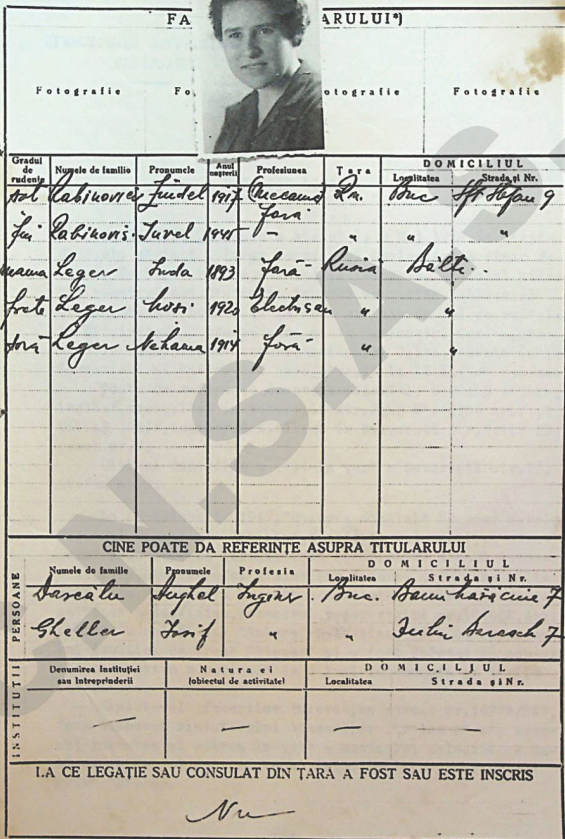 FA ARULUI*)
Fotografie Fo otografie Fotografie
Gradul de rudenie Numele de familie Pronumele Anul nașterii Profesiunea Țara DOMICILIUL
Localitatea Strada și Nr.
sot Rabinovici 1917 Mecanic Rm. Buc Sft Stefan 9
fără
fiu Rabinovis. 1945 - " " "
mama Leger 1893 fără - Rusia Bălti..
frate Leger 1920 Electrician " "
soră Leger Nehama 1914 fără - " "
CINE POATE DA REFERINȚE ASUPRA TITULARULUI
PERSOANE
Numele de familie Pronumele Profesia DOMICILIUL
Localitatea Strada și Nr.
Dascălu Inginer Buc. 7
Gheller Iosif " " Iuliu Barasch 7
INSTITUȚII
Denumirea Instituției sau întreprinderii Natura ei (obiectul de activitate) DOMICILIUL
Localitatea Strada și Nr.
— — — —
LA CE LEGAȚIE SAU CONSULAT DIN ȚARA A FOST SAU ESTE INSCRIS
Nu
C.N.S.A.S.